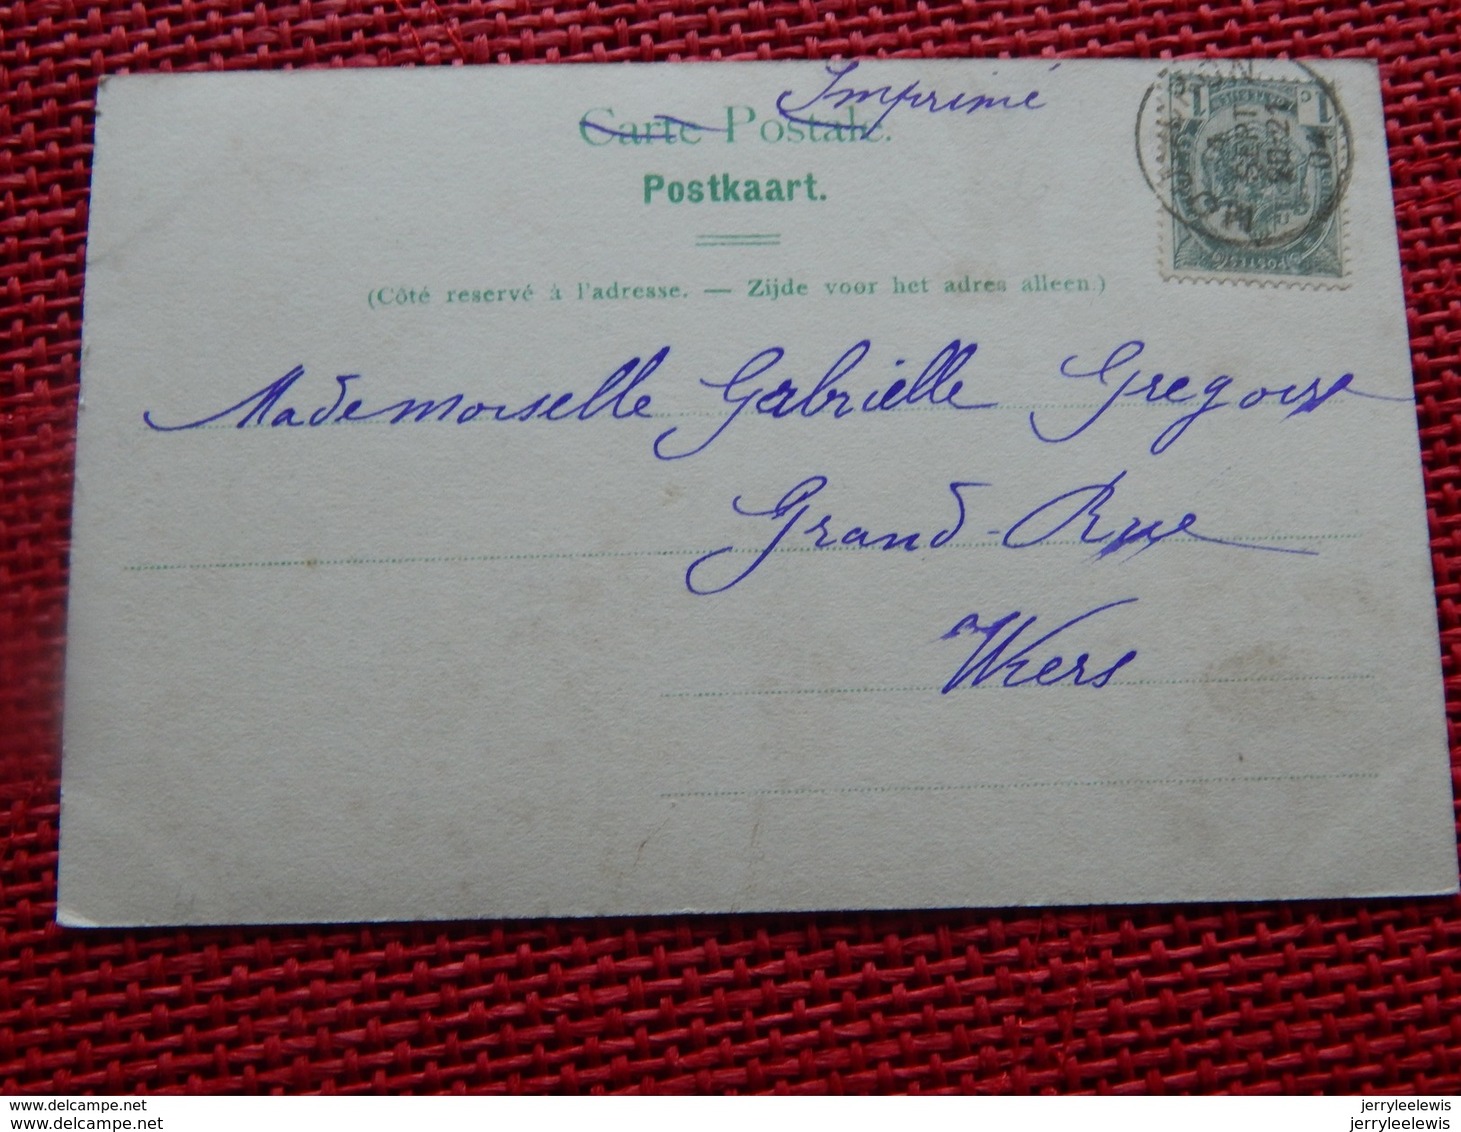 Imprimé
Carte Postale.
Postkaart.
(Côté reservé à l'adresse. — Zijde voor het adres alleen.)
Mademoiselle Gabrielle Gregoire
Grand-Rue
Wiers
POSTES
SEPT
www.delcampe.net
www.delcampe.net
jerryleelewis
jerryleelewis